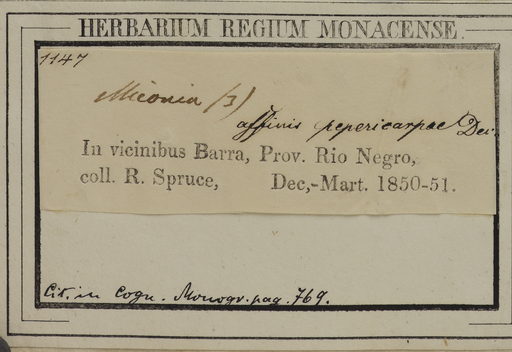 HERBARIUM REGIUM MONACENSE.
1147
Miconia (3)
affinis pepericarpae Dec.
In vicinibus Barra, Prov. Rio Negro,
coll. R. Spruce, Dec,-Mart. 1850-51.
Cit. in Cogn. Monogr. pag. 769.